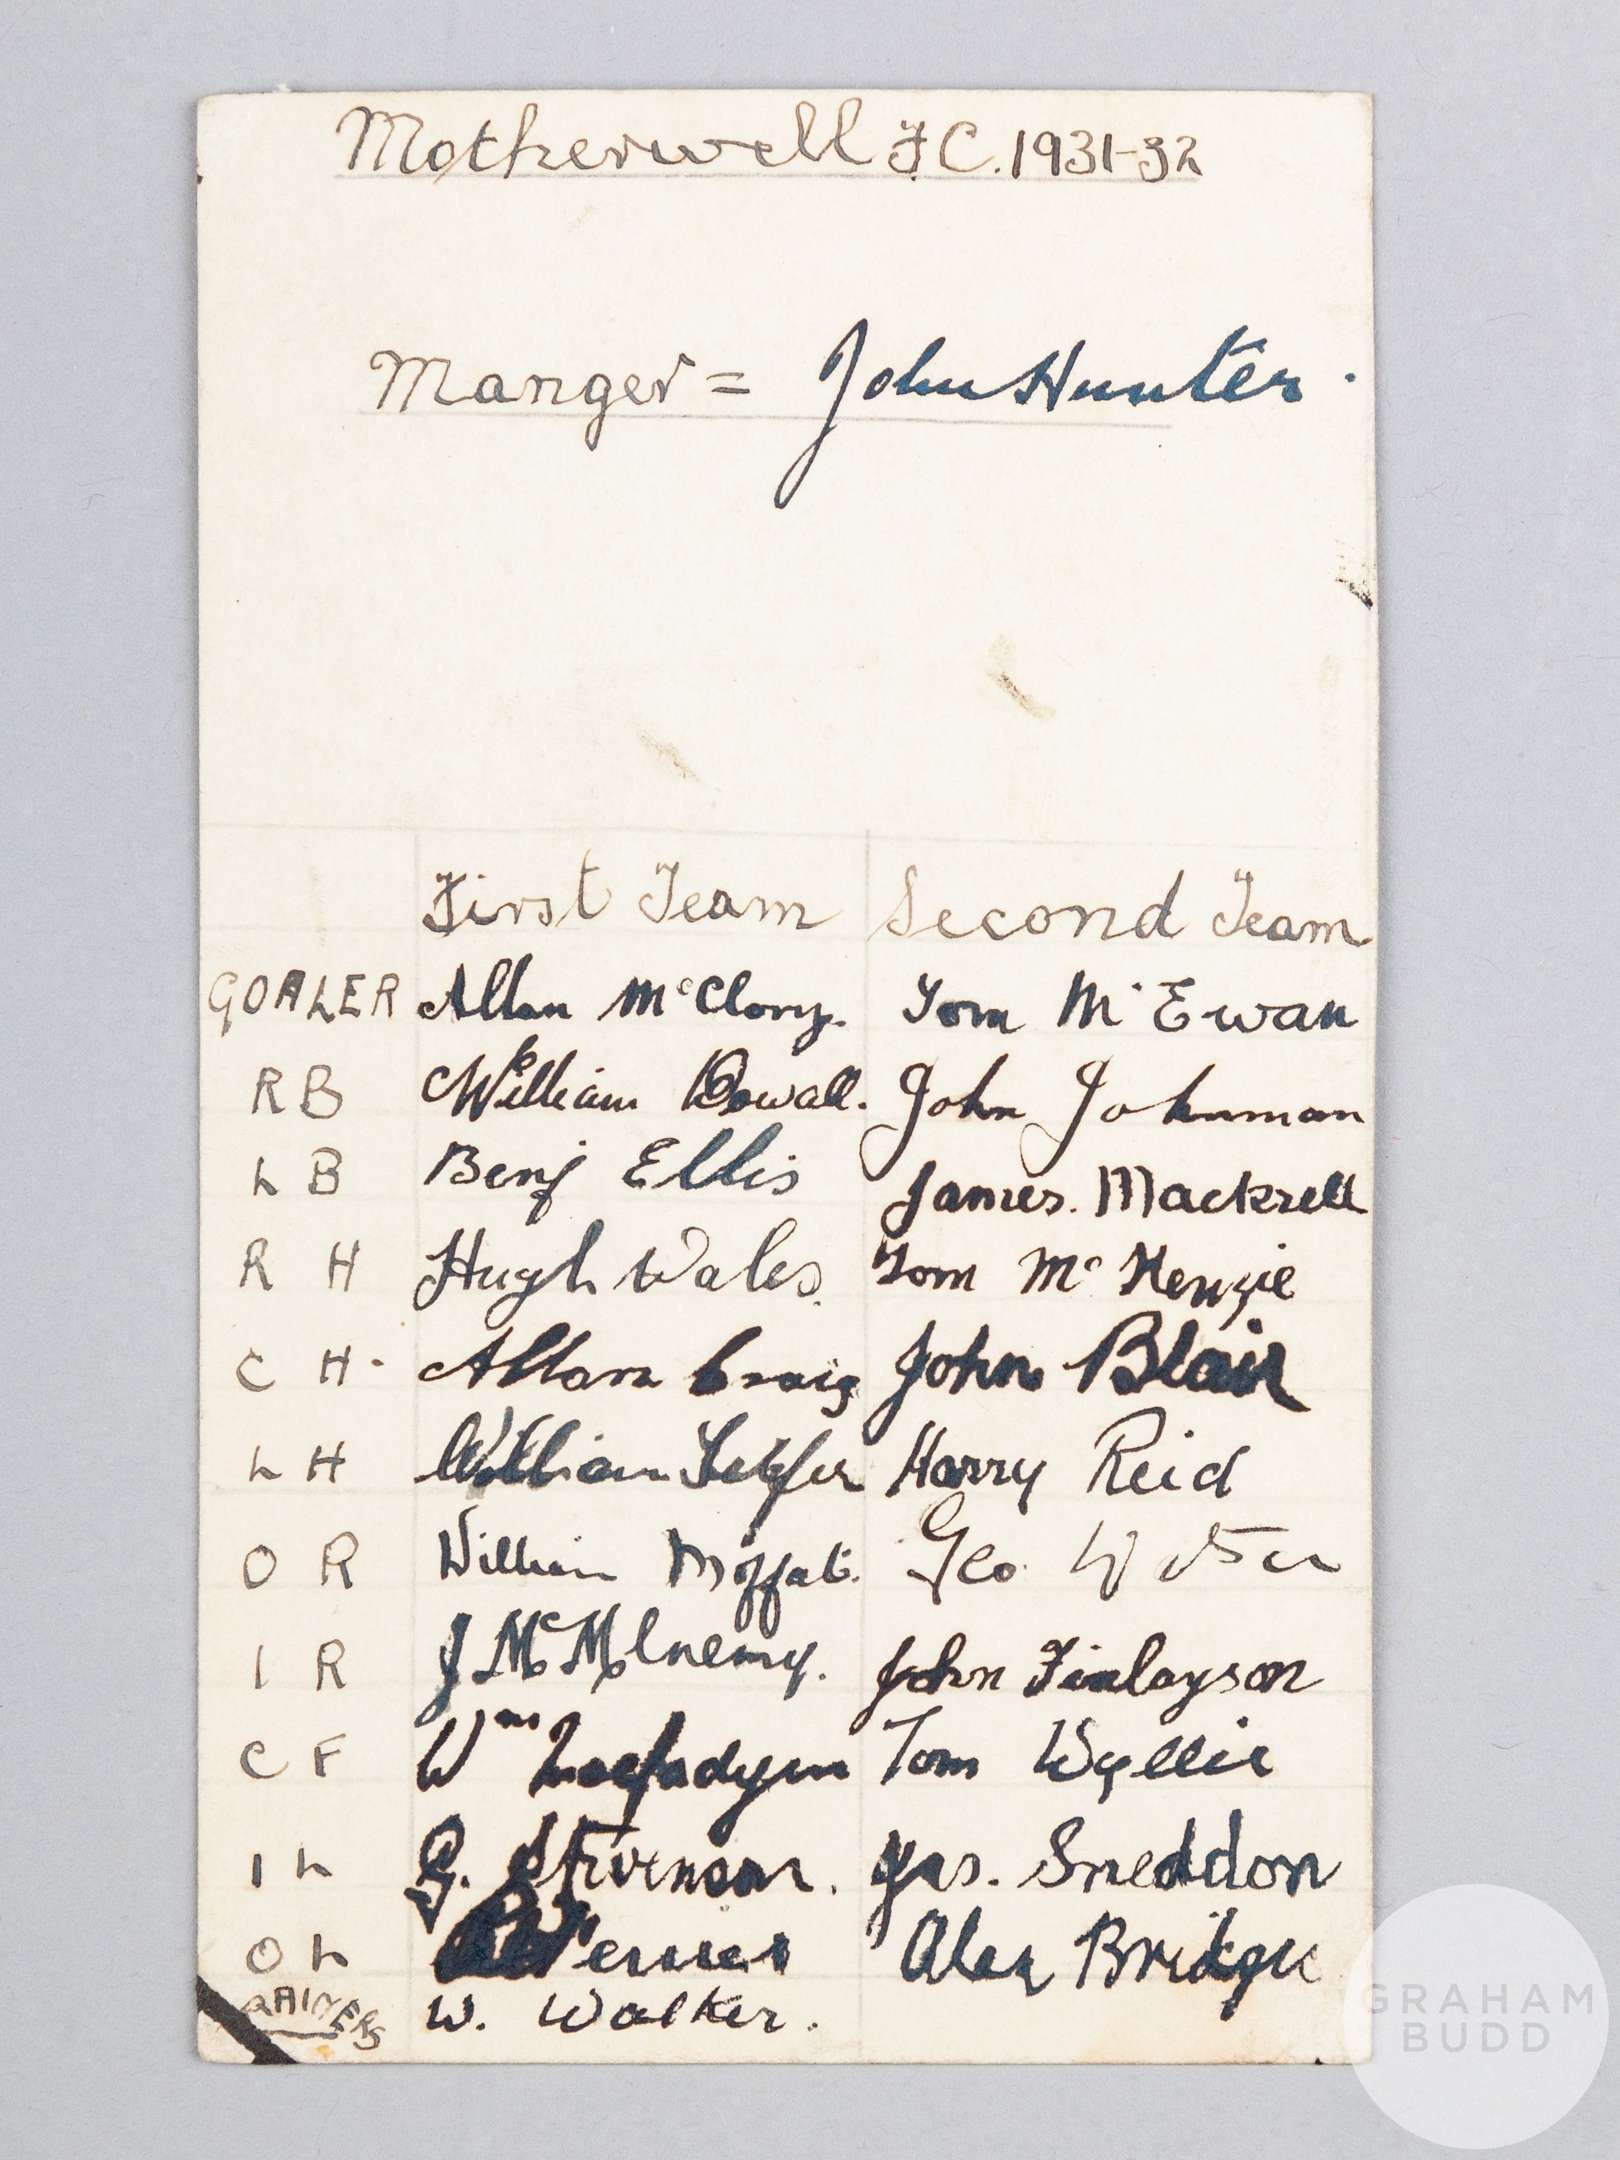 Motherwell F.C. 1931-32
Manger = John Hunter.
First Team Second Team
GOALER Allan McClory. Tom McEwan
R B William Dowall. John Johnman
L B Benj Ellis James. Mackrell
R H Hugh Wales. Tom McKenzie
C H. Allan Craig John Blair
L H William Telfer Harry Reid
O R William Moffat. Geo.
I R J. McMenemy. John Finlayson
C F Wm Macfadyen Tom Wyllie
I L G. Stevenson. Jas. Sneddon
O L Ferrier Alex Bridge
TRAINERS W. Walker.
GRAHAM
BUDD